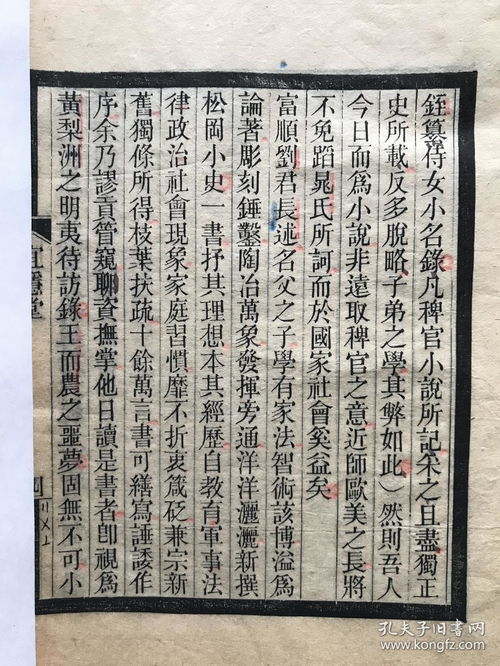 銍纂侍女小名錄凡稗官小說所記采之且盡獨正
史所載反多脫略子弟之學其弊如此）然則吾人
今日而為小說非遠取稗官之意近師歐美之長將
不免蹈晁氏所訶而於國家社會奚益矣
富順劉君長述名父之子學有家法智術該博溢為
論著彫刻錘鑿陶冶萬象發揮旁通洋洋灑灑新撰
松岡小史一書抒其理想本其經歷自教育軍事法
律政治社會現象家庭習慣靡不折衷箴砭兼宗新
舊獨條所得枝葉扶疏十餘萬言書可繕寫諈諉作
序余乃謬貢管窺聊資撫掌他日讀是書者卽視為
黃梨洲之明夷待訪錄王而農之噩夢固無不可小
堂
孔夫子旧书网
www.kongfz.com